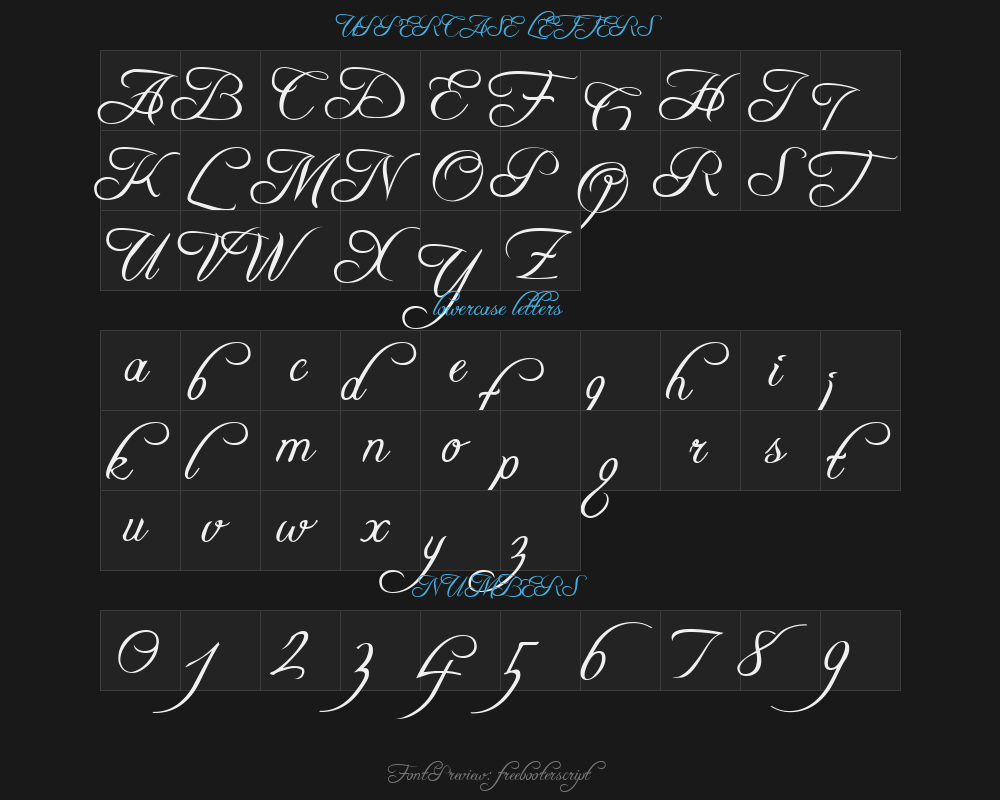 UPPERCASE LETTERS
A B C D E F G H I J
K L M N O P Q R S T
U V W X Y Z
lowercase letters
a b c d e f g h i j
k l m n o p q r s t
u v w x y z
NUMBERS
0 1 2 3 4 5 6 7 8 9
Font Preview: freebooterscript